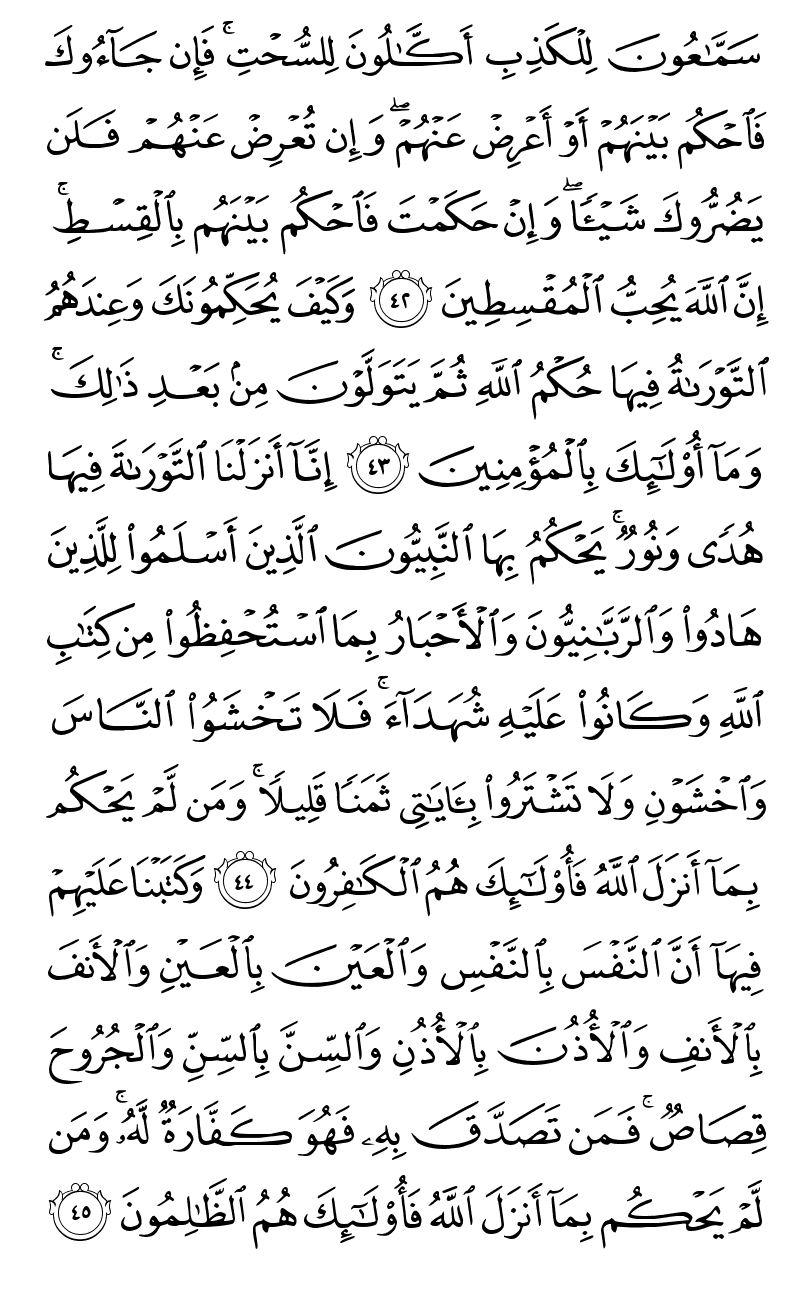 سَمَّـٰعُونَ لِلْكَذِبِ أَكَّـٰلُونَ لِلسُّحْتِ ۚ فَإِن جَآءُوكَ
فَٱحْكُم بَيْنَهُمْ أَوْ أَعْرِضْ عَنْهُمْ ۖ وَإِن تُعْرِضْ عَنْهُمْ فَلَن
يَضُرُّوكَ شَيْـًٔا ۖ وَإِنْ حَكَمْتَ فَٱحْكُم بَيْنَهُم بِٱلْقِسْطِ ۚ
إِنَّ ٱللَّهَ يُحِبُّ ٱلْمُقْسِطِينَ ٤٢ وَكَيْفَ يُحَكِّمُونَكَ وَعِندَهُمُ
ٱلتَّوْرَىٰةُ فِيهَا حُكْمُ ٱللَّهِ ثُمَّ يَتَوَلَّوْنَ مِنۢ بَعْدِ ذَٰلِكَ ۚ
وَمَآ أُو۟لَـٰٓئِكَ بِٱلْمُؤْمِنِينَ ٤٣ إِنَّآ أَنزَلْنَا ٱلتَّوْرَىٰةَ فِيهَا
هُدًى وَنُورٌ ۚ يَحْكُمُ بِهَا ٱلنَّبِيُّونَ ٱلَّذِينَ أَسْلَمُوا۟ لِلَّذِينَ
هَادُوا۟ وَٱلرَّبَّـٰنِيُّونَ وَٱلْأَحْبَارُ بِمَا ٱسْتُحْفِظُوا۟ مِن كِتَـٰبِ
ٱللَّهِ وَكَانُوا۟ عَلَيْهِ شُهَدَآءَ ۚ فَلَا تَخْشَوُا۟ ٱلنَّاسَ
وَٱخْشَوْنِ وَلَا تَشْتَرُوا۟ بِـَٔايَـٰتِى ثَمَنًا قَلِيلًا ۚ وَمَن لَّمْ يَحْكُم
بِمَآ أَنزَلَ ٱللَّهُ فَأُو۟لَـٰٓئِكَ هُمُ ٱلْكَـٰفِرُونَ ٤٤ وَكَتَبْنَا عَلَيْهِمْ
فِيهَآ أَنَّ ٱلنَّفْسَ بِٱلنَّفْسِ وَٱلْعَيْنَ بِٱلْعَيْنِ وَٱلْأَنفَ
بِٱلْأَنفِ وَٱلْأُذُنَ بِٱلْأُذُنِ وَٱلسِّنَّ بِٱلسِّنِّ وَٱلْجُرُوحَ
قِصَاصٌ ۚ فَمَن تَصَدَّقَ بِهِۦ فَهُوَ كَفَّارَةٌ لَّهُۥ ۚ وَمَن
لَّمْ يَحْكُم بِمَآ أَنزَلَ ٱللَّهُ فَأُو۟لَـٰٓئِكَ هُمُ ٱلظَّـٰلِمُونَ ٤٥